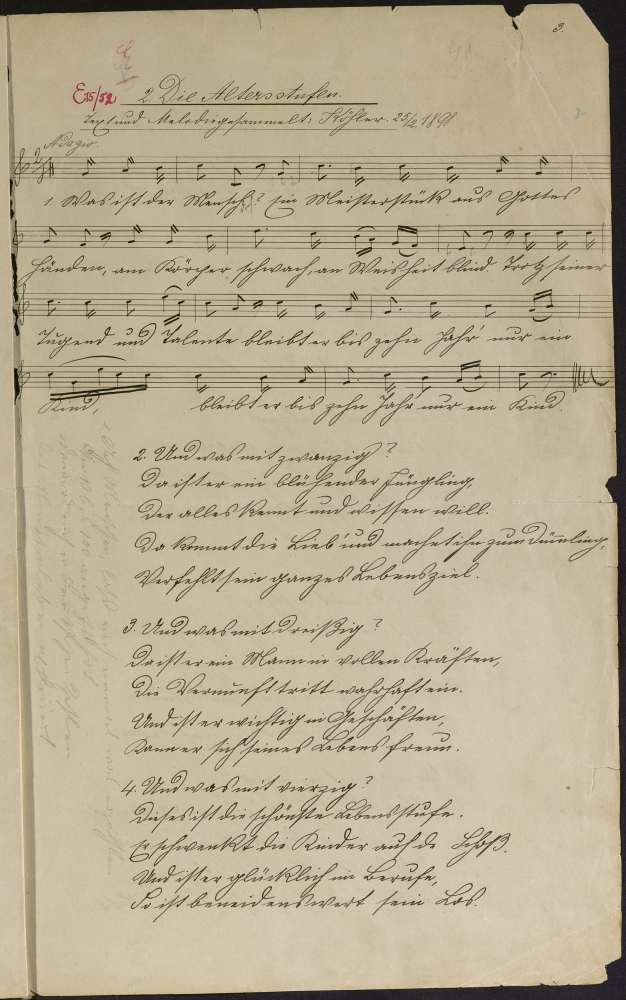 3.
E 75/52 2. Die Altersstufen.
Text und Melodie gesammelt: Köhler. 25/2 1891
Adagio.
1. Was ist der Mensch? Ein Meisterstück aus Gottes
Händen, am Körper schwach, an Weisheit blind. Trotz seiner
Tugend und Talente bleibt er bis zehn Jahr' nur ein
Kind, bleibt er bis zehn Jahr' nur ein Kind.
2. Und was mit zwanzig?
Da ist er ein blühender Jüngling,
Der alles kennt und wissen will.
Da kommt die Lieb' und macht ihn zum Dümling,
Verfehlt sein ganzes Lebensziel.
3. Und was mit dreißig?
Da ist er ein Mann in vollen Kräften,
Die Vernunft tritt wahrhaft ein.
Und ist er wichtig in Geschäften,
Kann er sich seines Lebens freun.
4. Und was mit vierzig?
Dieses ist die schönste Lebensstufe.
Er schwenkt die Kinder auf de Schoß.
Und ist er glücklich im Berufe,
So ist beneidenswert sein Los.